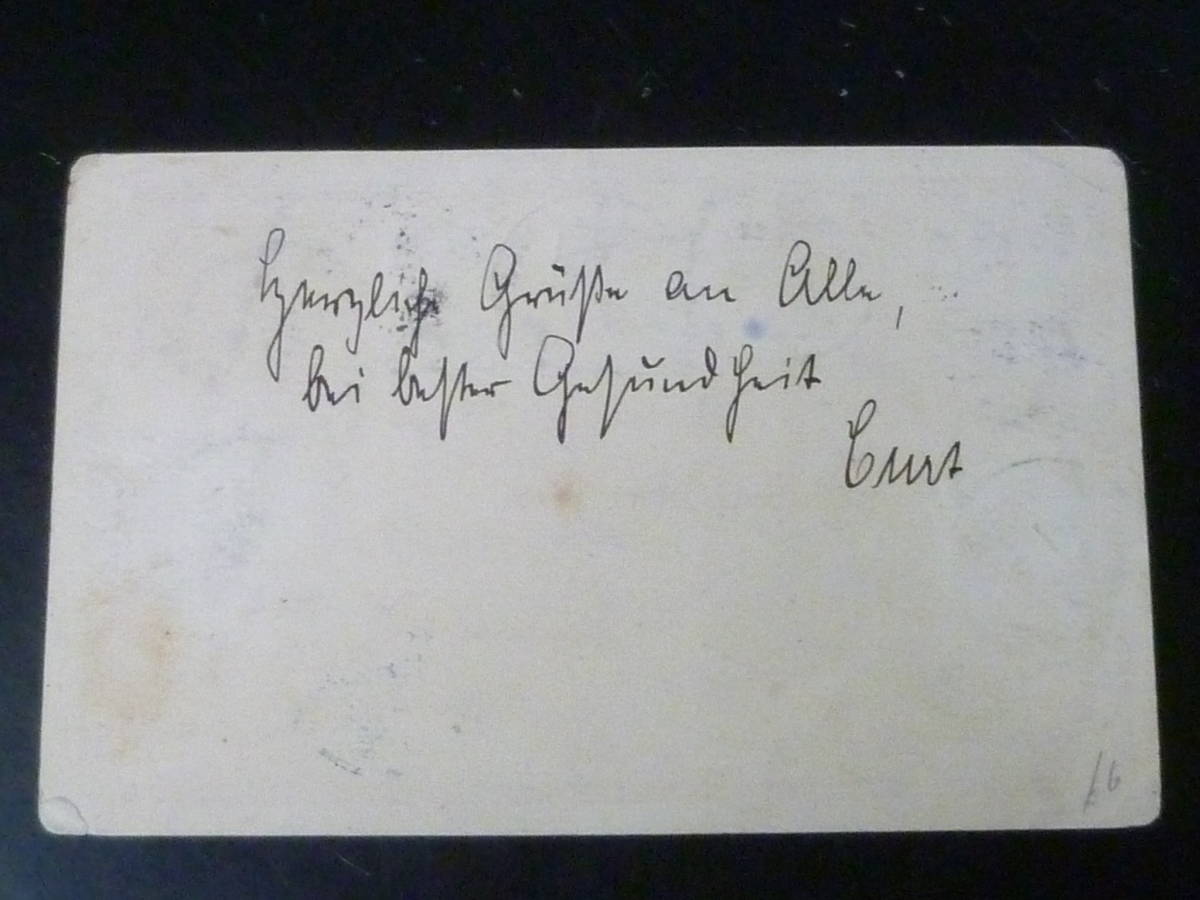 Herzliche Grüße an Alle,
bei bester Gesundheit
Curt